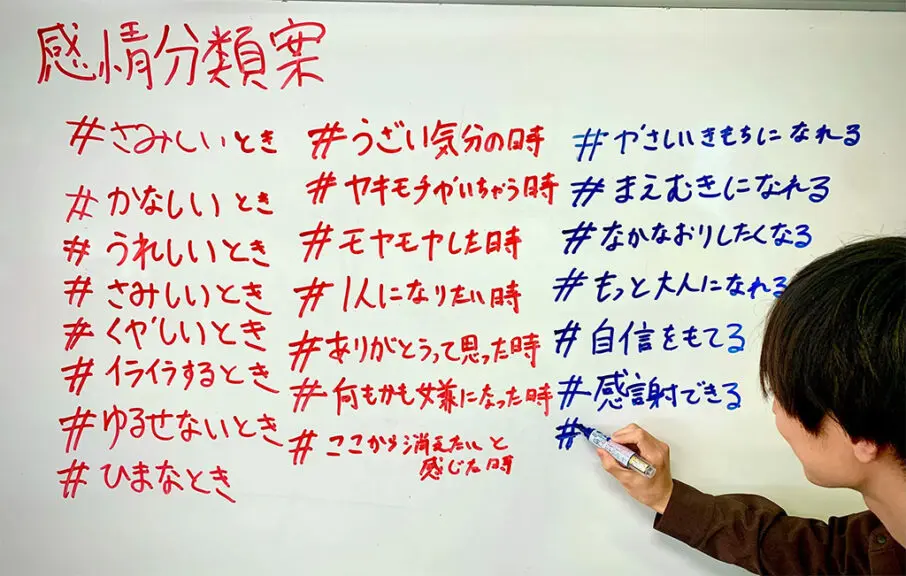 感情分類案
#さみしいとき
#かなしいとき
#うれしいとき
#さみしいとき
#くやしいとき
#イライラするとき
#ゆるせないとき
#ひまなとき
#うざい気分の時
#ヤキモチやいちゃう時
#モヤモヤした時
#1人になりたい時
#ありがとうって思った時
#何もかも嫌になった時
#ここから消えたいと
感じた時
#やさしいきもちになれる
#まえむきになれる
#なかなおりしたくなる
#もっと大人になれる
#自信をもてる
#感謝できる
#